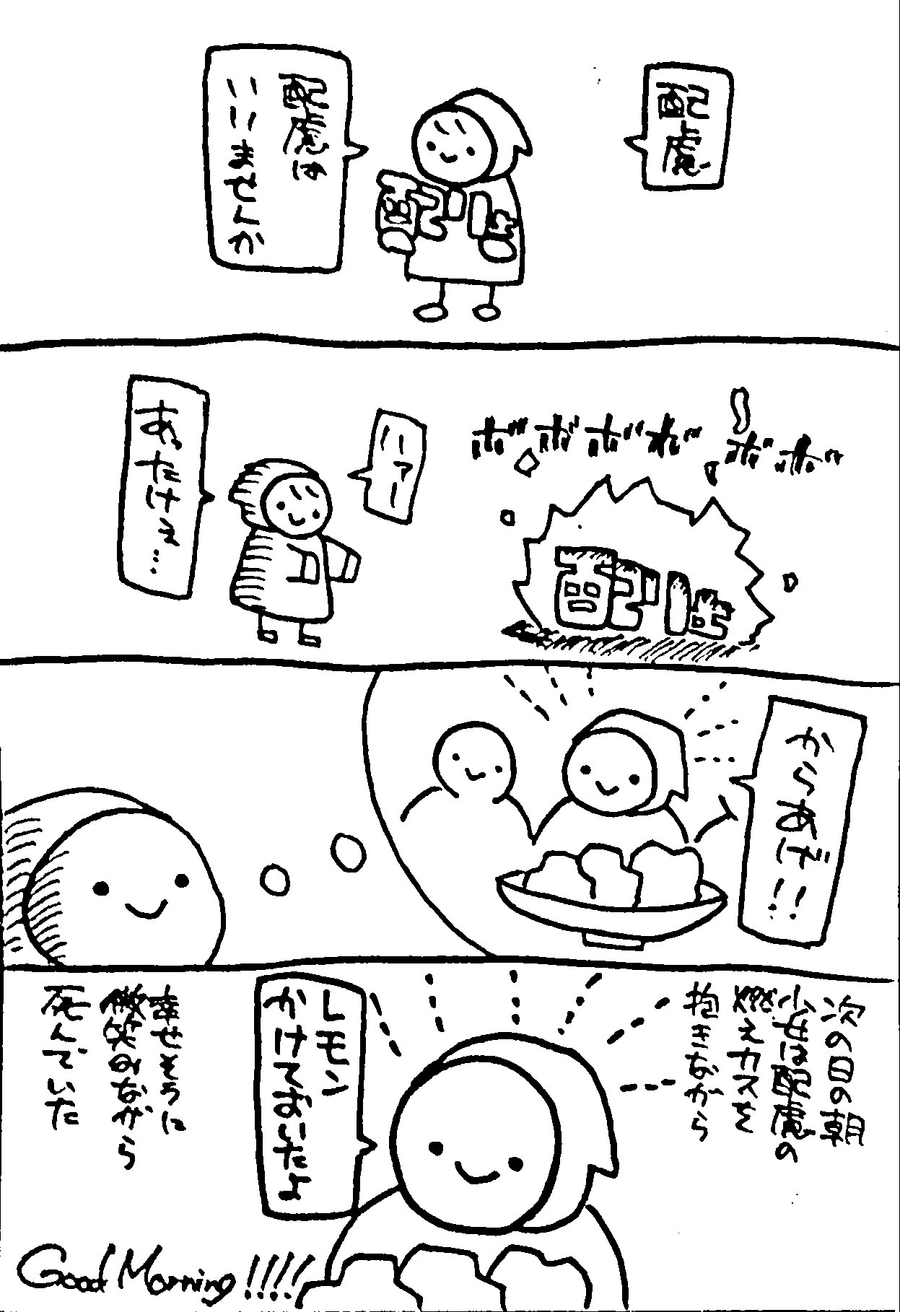 配慮
配慮は
いいませんか
ボボボボボボ
ハァー
あったけぇ…
からあげ!!
次の日の朝
少女は配慮の
燃えカスを
抱きながら
レモン
かけておいたよ
幸せそうに
微笑みながら
死んでいた
Good Morning!!!!